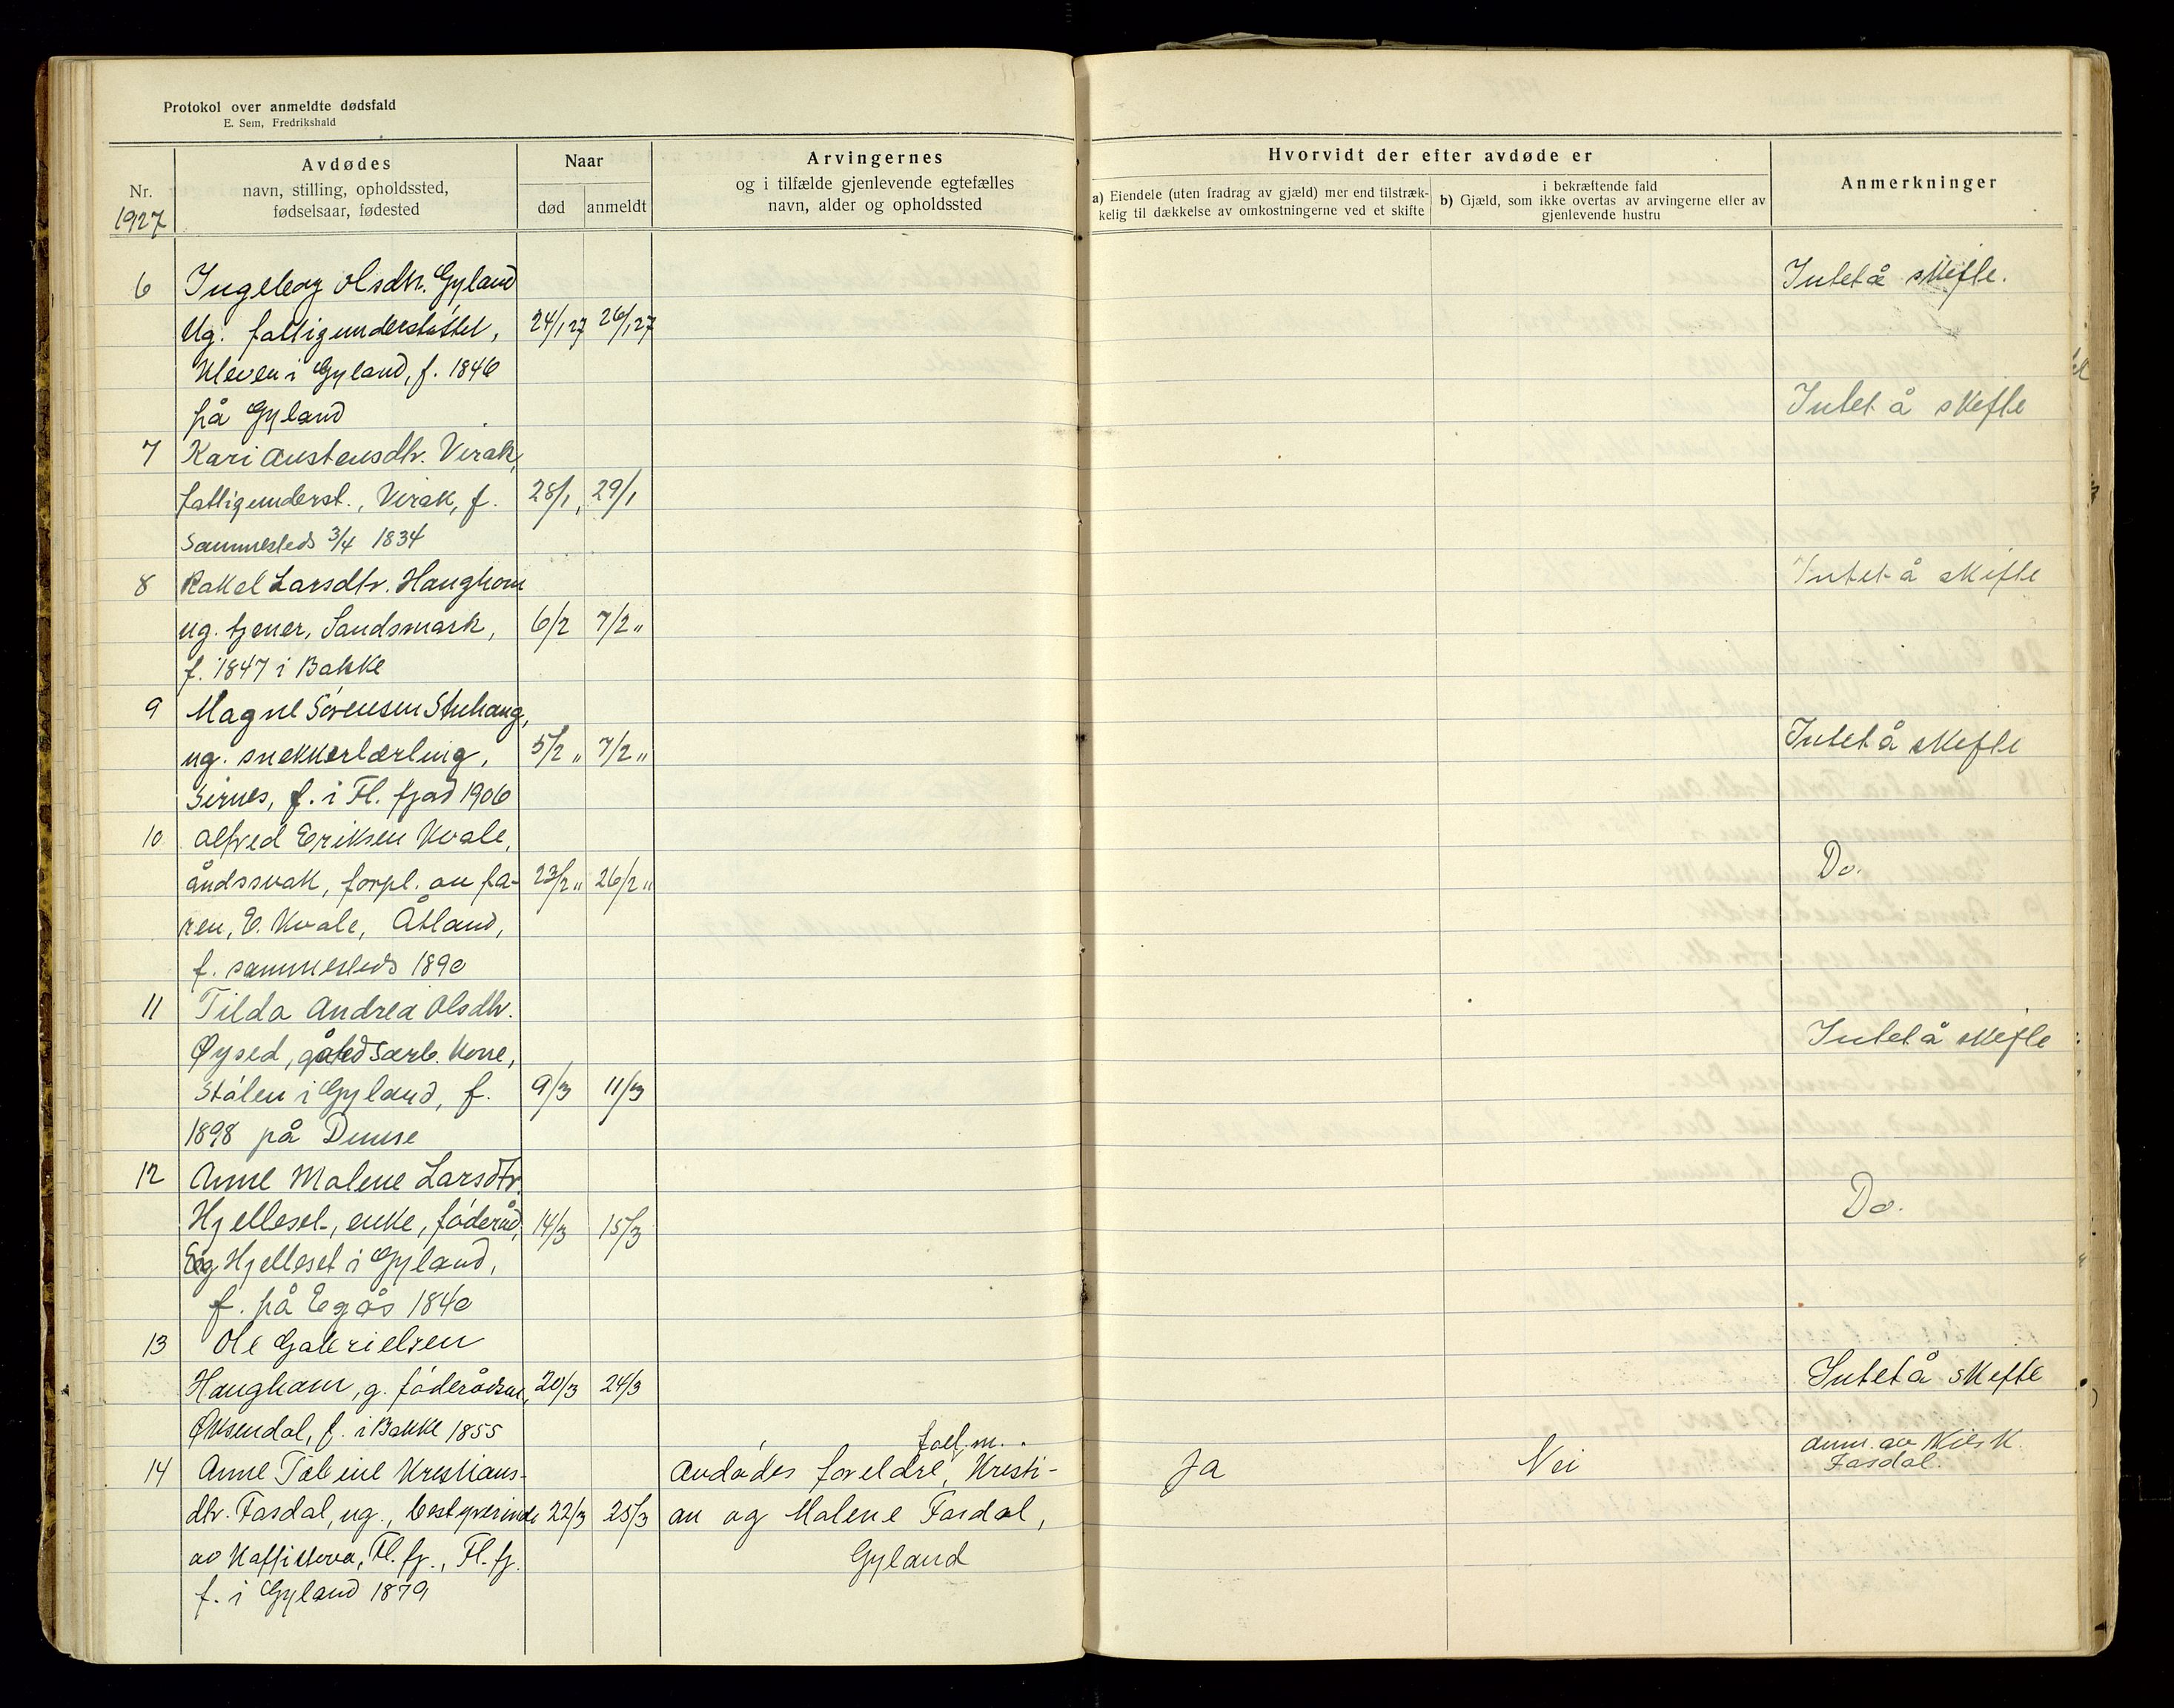 Protokol over anmeldte dødsfald
E. Sem, Fredrikshald
Nr.
1927
Avdødes
navn, stilling, opholdssted,
fødselsaar, fødested
Naar
død
anmeldt
Arvingernes
og i tilfælde gjenlevende egtefælles
navn, alder og opholdssted
Hvorvidt der efter avdøde er
a) Eiendele (uten fradrag av gjæld) mer end tilstræk-
kelig til dækkelse av omkostningerne ved et skifte
i bekræftende fald
b) Gjæld, som ikke overtas av arvingerne eller av
gjenlevende hustru
Anmerkninger
6 Ingeborg Olsdtr. Gyland
Ug. fattigunderstøttet, 24/1 27 26/1 27
Kleven i Gyland, f. 1846
på Gyland
Intet å skifte.
7 Kari Austensdtr. Virak,
fattigunderst., Virak, f. 28/1 29/1
sammesteds 3/4 1834
Intet å skifte
8 Rakel Larsdtr. Haughom
ug. tjener, Sandsmark, 6/2 7/2 "
f. 1847 i Bakke
Intet å skifte
9 Magne Sørensen Stuhaug,
ug. snekkerlærling, 5/2 " 7/2 "
Sirnes, f. i Fl. fjord 1906
Intet å skifte
10 Alfred Eriksen Kvale,
åndssvak, forpl. av fa- 23/2 " 26/2 "
ren, E. Kvale, Åtland,
f. sammesteds 1890
Do.
11 Tilda Andrea Olsdtr.
Øysed, særb. kone,
Stølen i Gyland, f. 9/3 11/3
1898 på Dunse
Intet å skifte
12 Anne Malene Larsdtr.
Hjelleset, enke, føderåd, 14/3 15/3
Hjelleset i Gyland,
f. på Egås 1840
Do.
13 Ole Gabrielsen
Haugham, g. føderådsm., 20/3 24/3
Øksendal, f. i Bakke 1855
Intet å skifte
14 Anne Tabine Kristians-
dtr. Fasdal, ug., bestyrerinde 22/3 25/3
av Kaffistova, Fl. fj., Fl. fj.
f. i Gyland 1879
Avdødes foreldre, Kristi-
an og Malene Fasdal,
Gyland
Ja
Nei
Anm. av Nils K.
Fasdal.